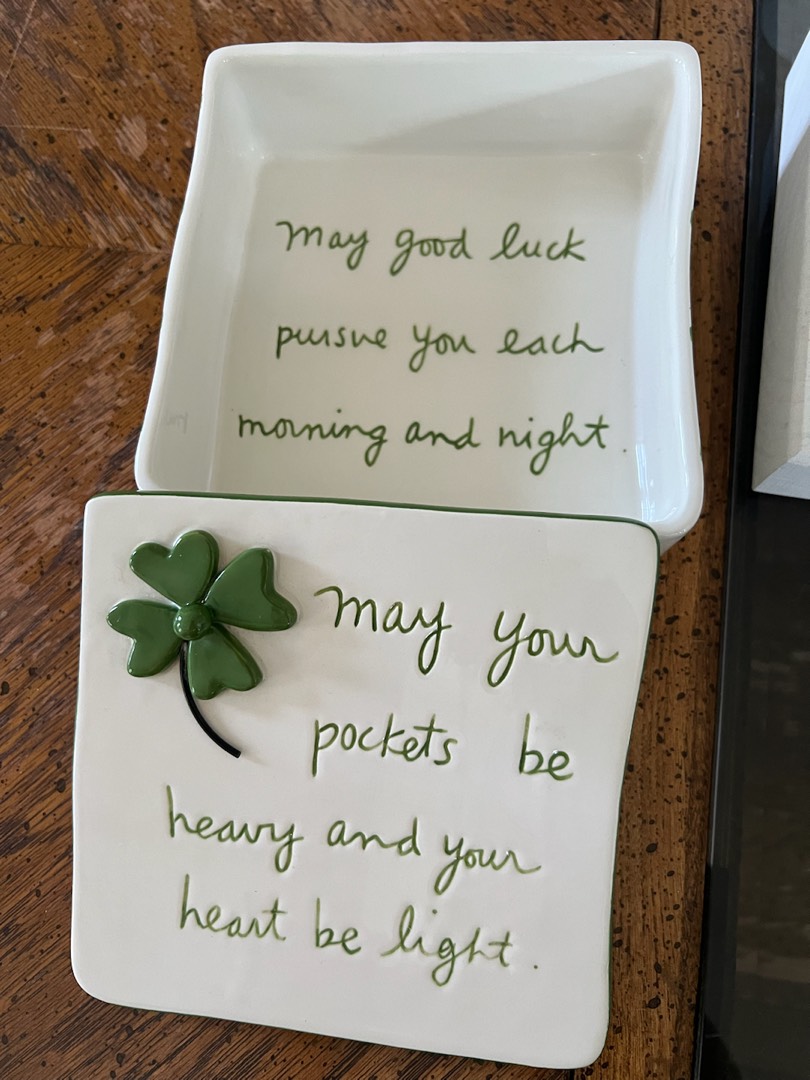 May good luck
pursue you each
morning and night.
May your
pockets be
heavy and your
heart be light.